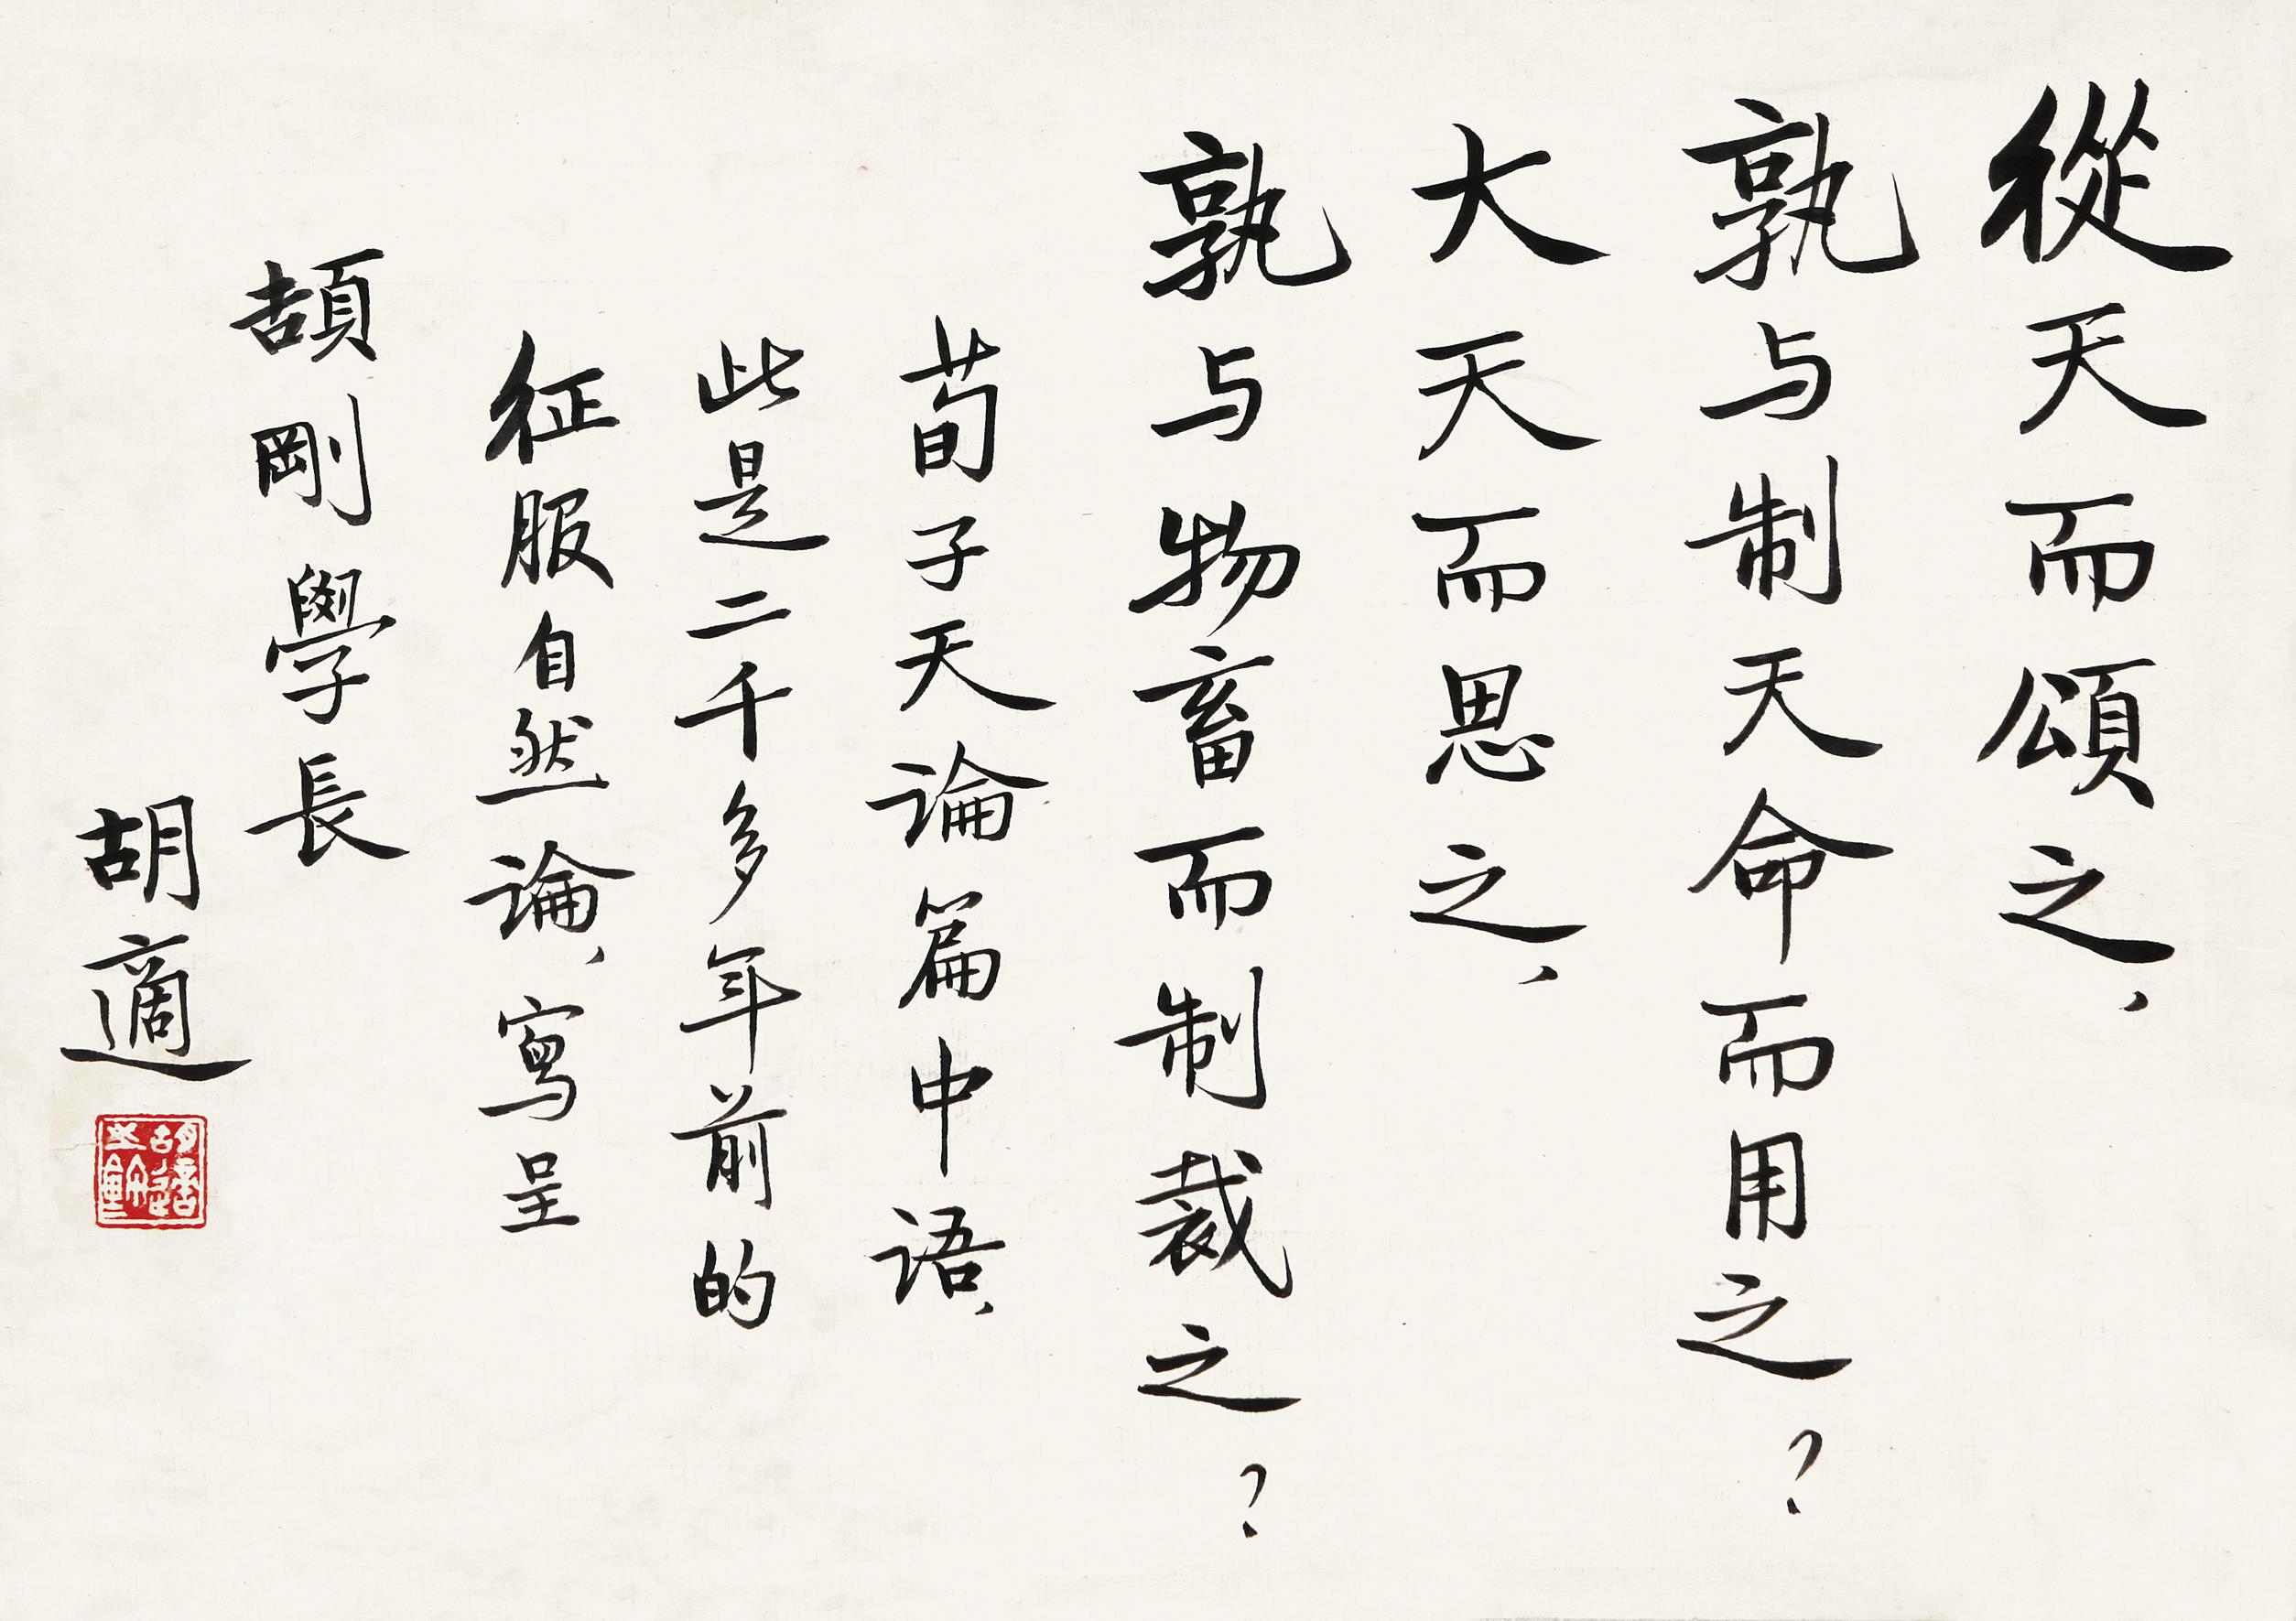 從天而頌之、
孰与制天命而用之？
大天而思之、
孰与物畜而制裁之？
荀子天論篇中语、
此是二千多年前的
征服自然論、寫呈
頡剛學長
胡適